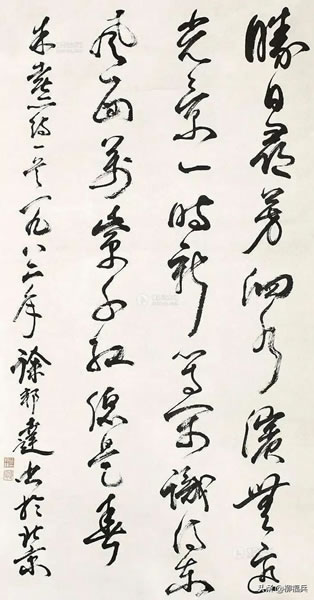 勝日尋芳泗水濱無邊
光景一時新等閒識得東
風面萬紫千紅總是春
朱熹詩一首一九八二年徐邦達書於北京